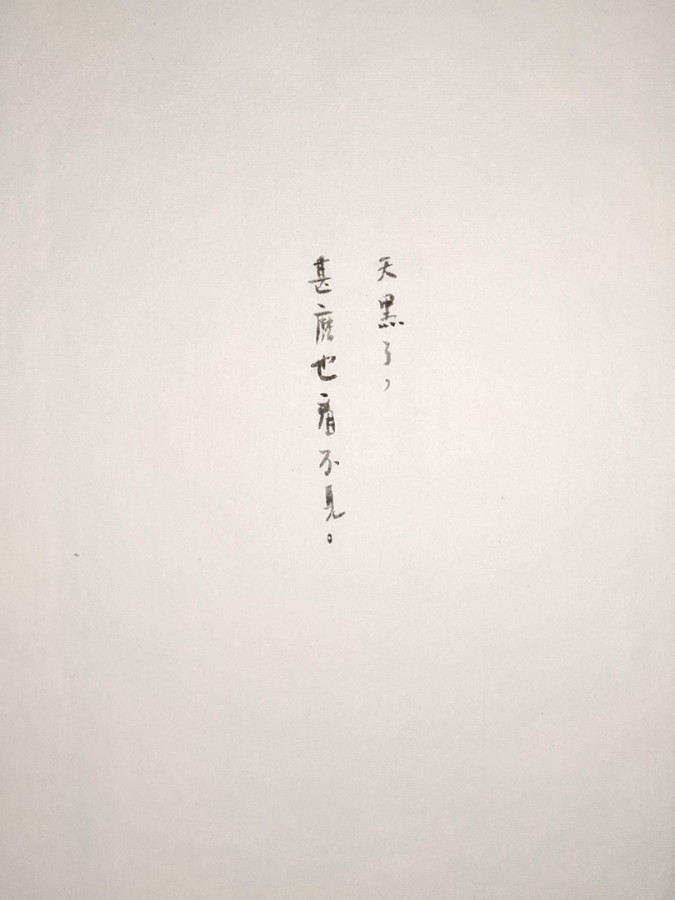 天黑了，
甚麽也看不見。